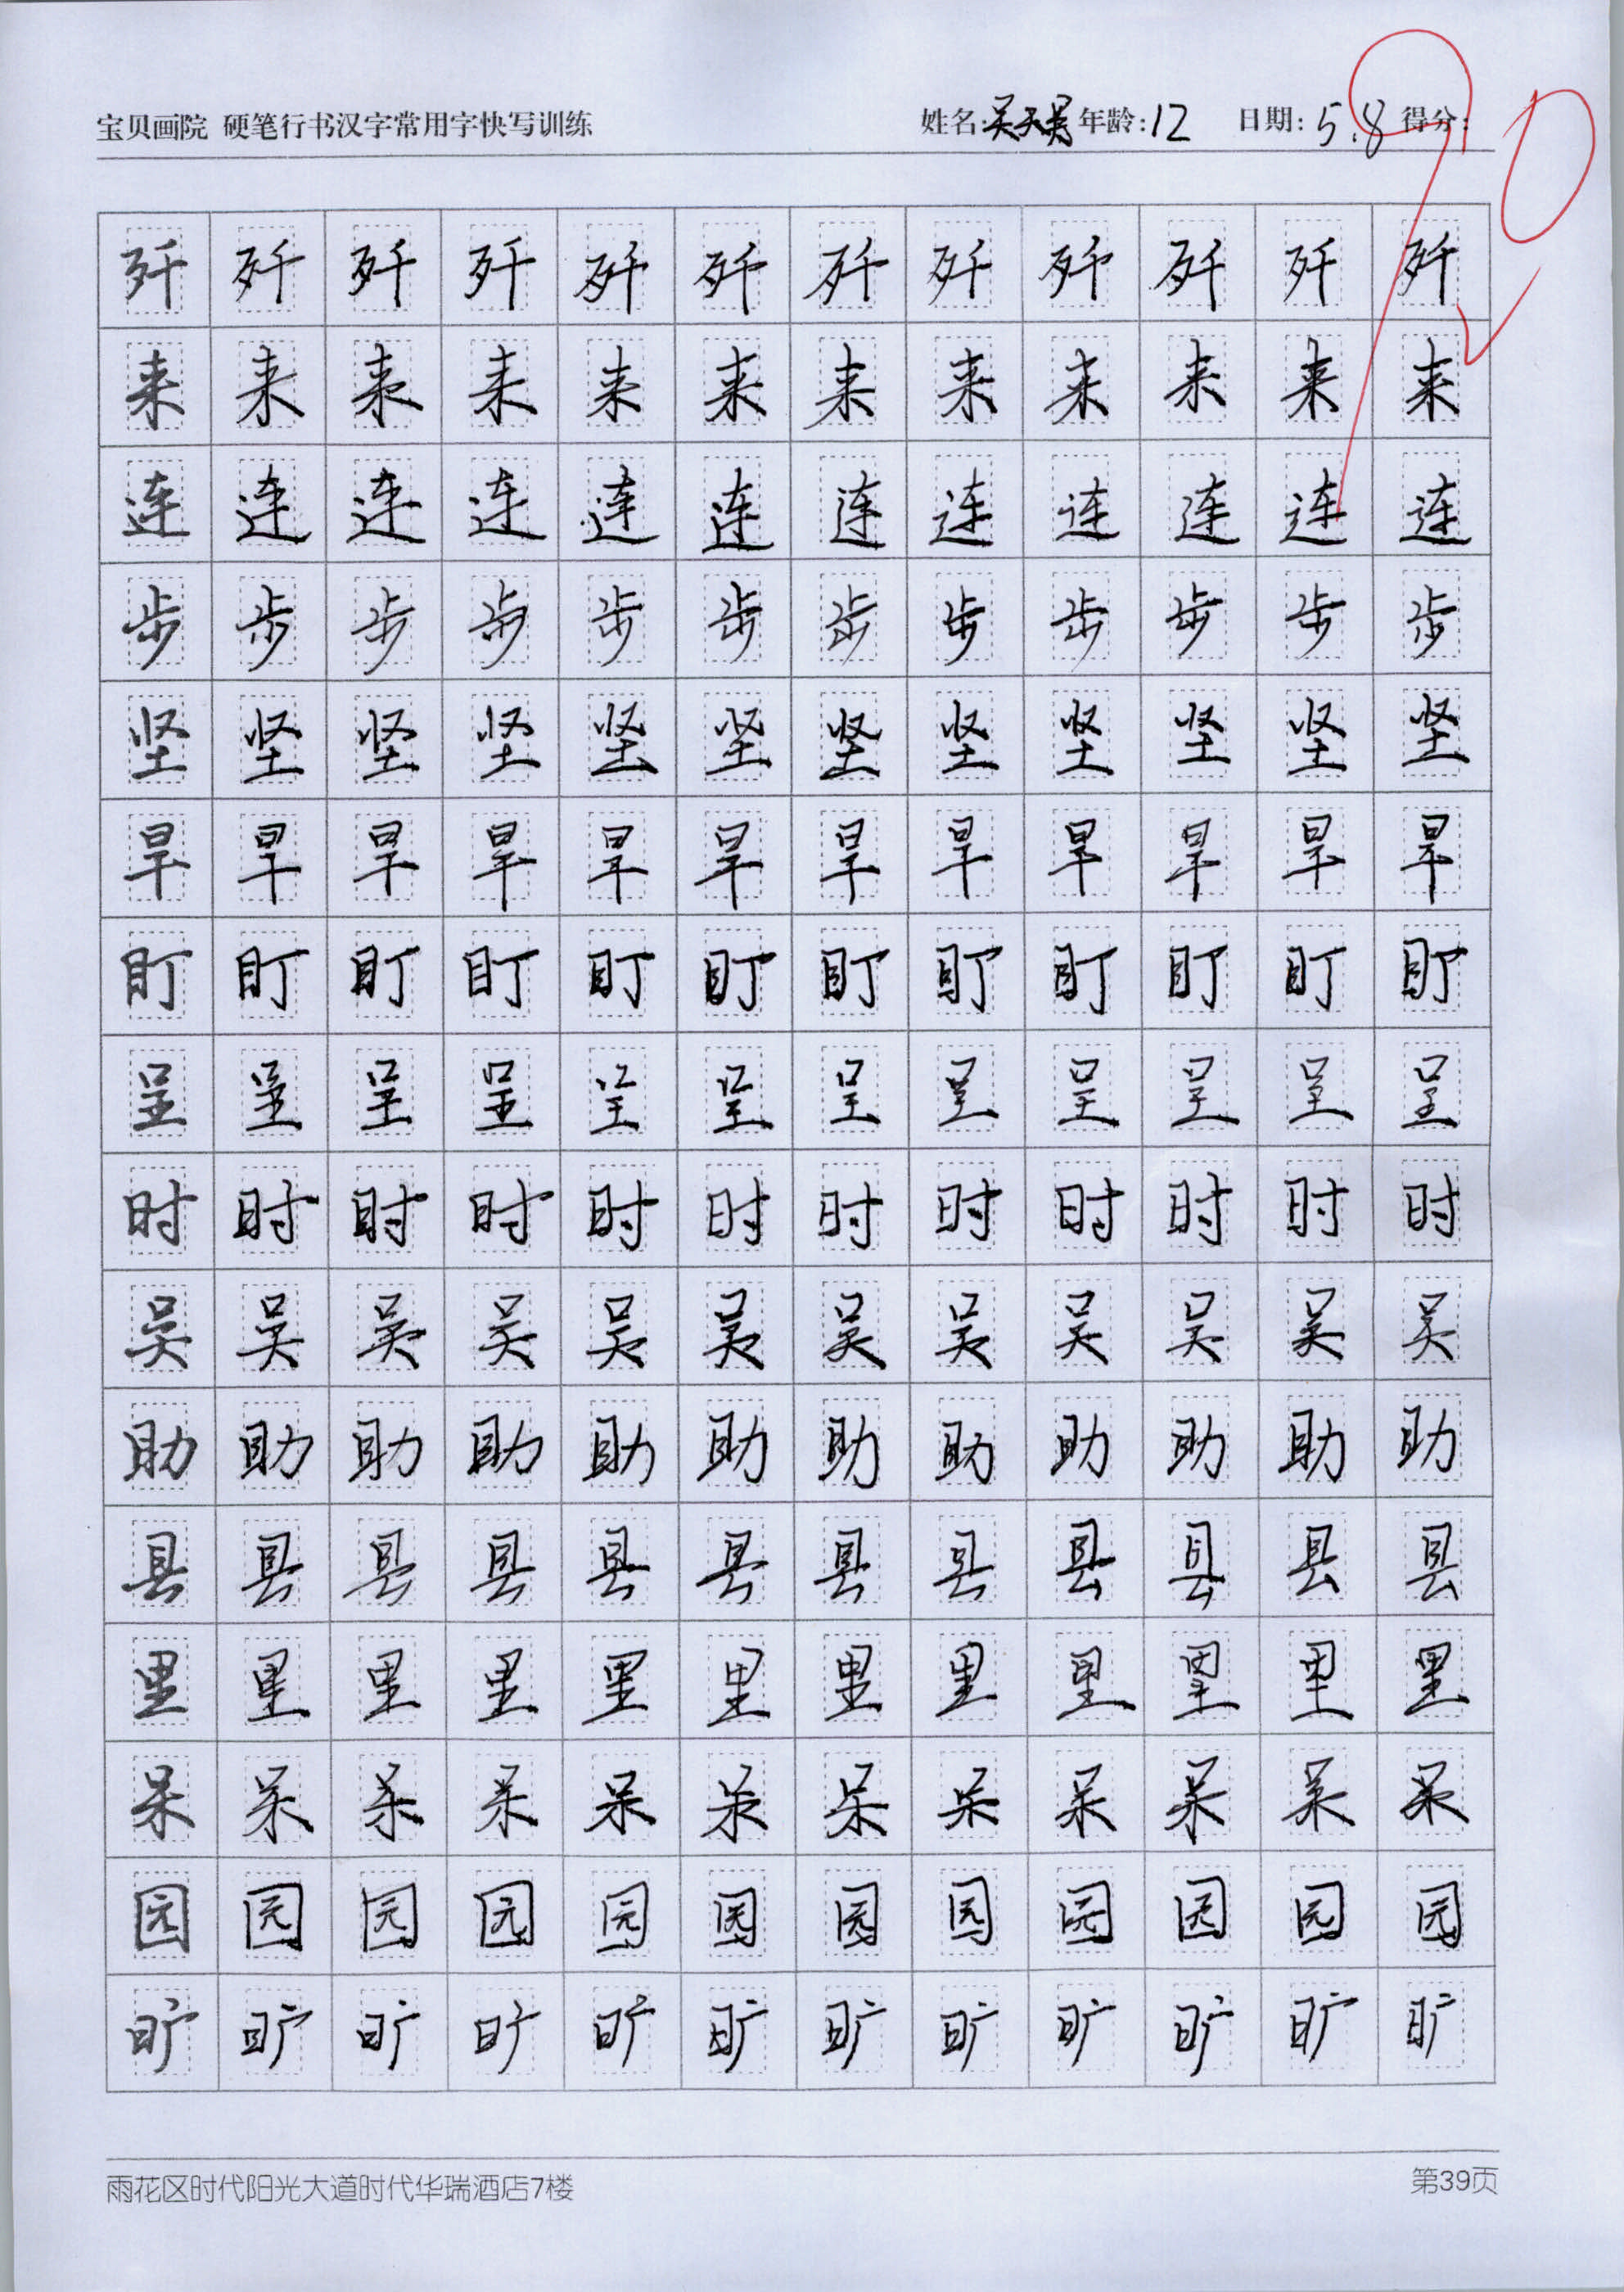 宝贝画院 硬笔行书汉字常用字快写训练 姓名:吴天昊 年龄:12 日期:5.8 得分:90
歼 歼 歼 歼 歼 歼 歼 歼 歼 歼 歼 歼
来 来 来 来 来 来 来 来 来 来 来 来
连 连 连 连 连 连 连 连 连 连 连 连
步 步 步 步 步 步 步 步 步 步 步 步
坚 坚 坚 坚 坚 坚 坚 坚 坚 坚 坚 坚
旱 旱 旱 旱 旱 旱 旱 旱 旱 旱 旱 旱
盯 盯 盯 盯 盯 盯 盯 盯 盯 盯 盯 盯
呈 呈 呈 呈 呈 呈 呈 呈 呈 呈 呈 呈
时 时 时 时 时 时 时 时 时 时 时 时
吴 吴 吴 吴 吴 吴 吴 吴 吴 吴 吴 吴
助 助 助 助 助 助 助 助 助 助 助 助
县 县 县 县 县 县 县 县 县 县 县 县
里 里 里 里 里 里 里 里 里 里 里 里
呆 呆 呆 呆 呆 呆 呆 呆 呆 呆 呆 呆
园 园 园 园 园 园 园 园 园 园 园 园
旷 旷 旷 旷 旷 旷 旷 旷 旷 旷 旷 旷
雨花区时代阳光大道时代华瑞酒店7楼 第39页